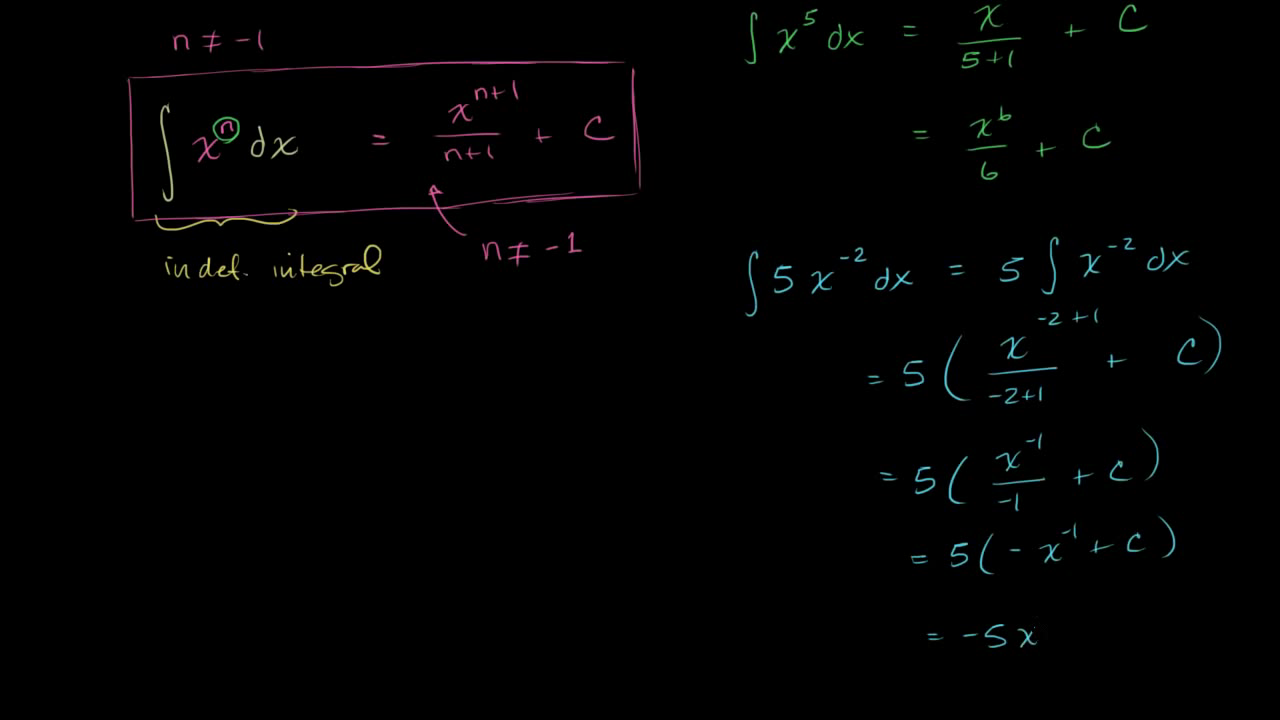 n ≠ -1
∫ xⁿ dx = xⁿ⁺¹/(n+1) + C
n ≠ -1
indef. integral
∫ x⁵ dx = x/(5+1) + C
= x⁶/6 + C
∫ 5 x⁻² dx = 5 ∫ x⁻² dx
= 5 ( x⁻²⁺¹/(-2+1) + C )
= 5 ( x⁻¹/-1 + C )
= 5 ( - x⁻¹ + C )
= -5x